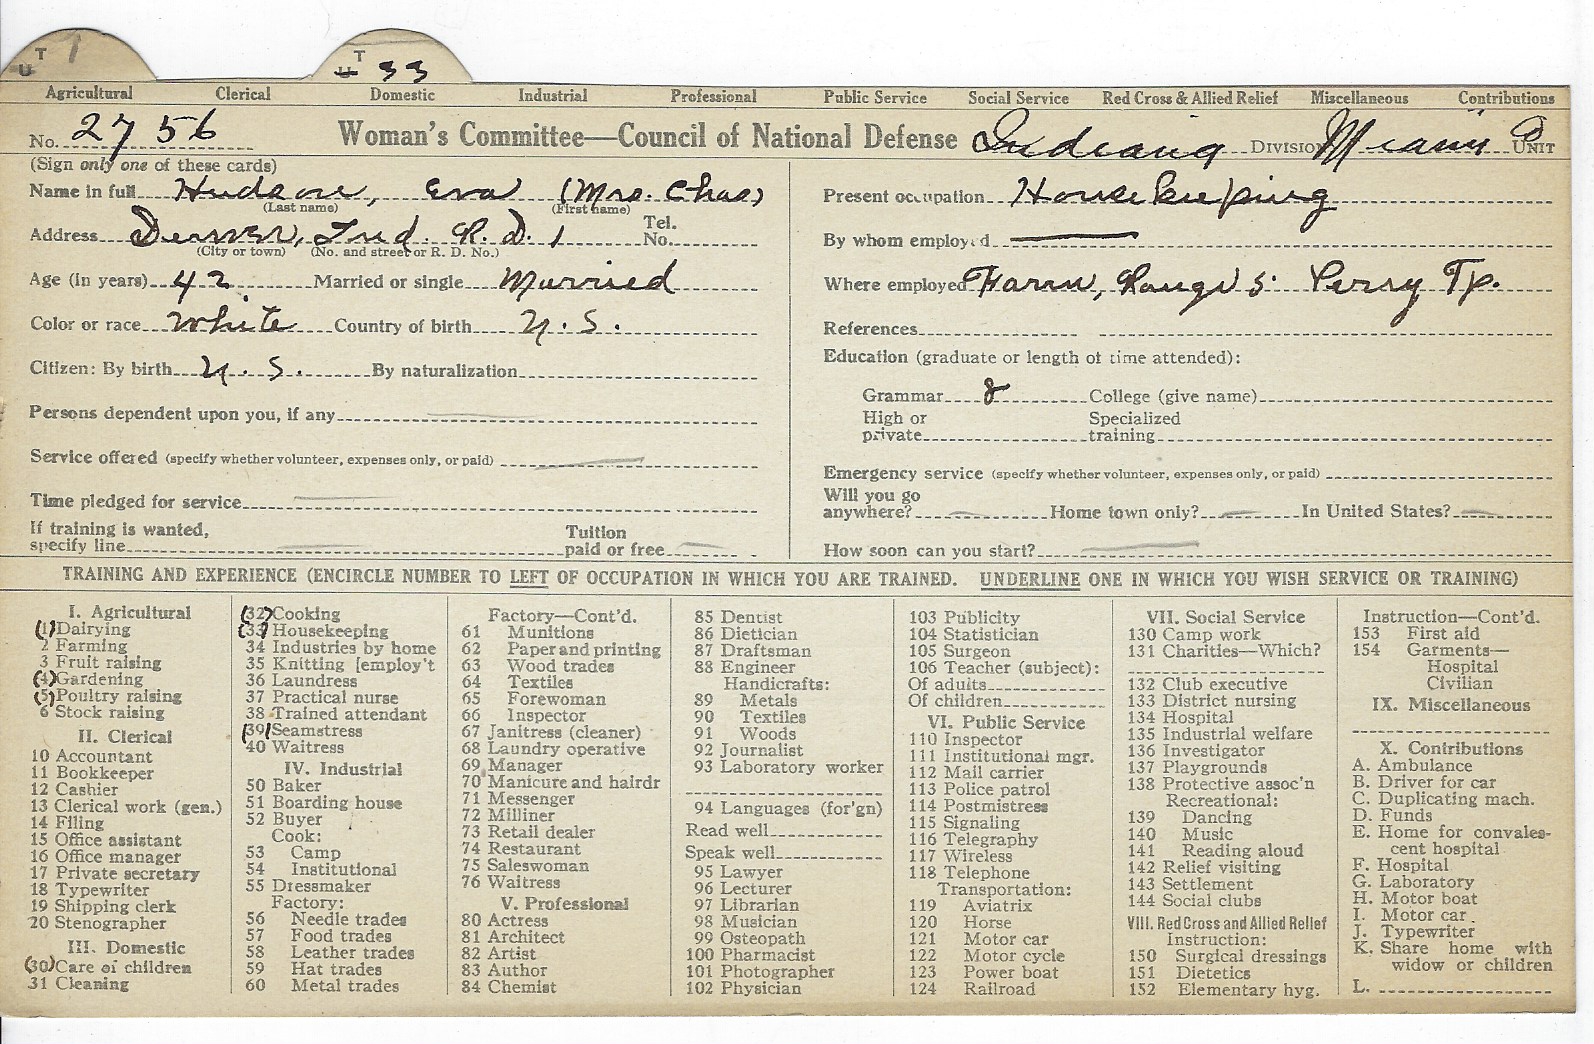 T
U 1
T
U 33
Agricultural Clerical Domestic Industrial Professional Public Service Social Service Red Cross & Allied Relief Miscellaneous Contributions
No. 2756 Woman's Committee—Council of National Defense Indiana Division Miami Co UNIT
(Sign only one of these cards)
Name in full Hudson, Eva (Mrs. Chas)
(Last name) (First name)
Address Denver, Ind. R. D. 1 Tel. No.
(City or town) (No. and street or R. D. No.)
Age (in years) 42 Married or single Married
Color or race White Country of birth U. S.
Citizen: By birth U. S. By naturalization
Persons dependent upon you, if any
Service offered (specify whether volunteer, expenses only, or paid)
Time pledged for service
If training is wanted, specify line Tuition paid or free
Present occupation Housekeeping
By whom employed
Where employed Farm, Range 5 Perry Tp.
References
Education (graduate or length of time attended):
Grammar 8 College (give name)
High or private Specialized training
Emergency service (specify whether volunteer, expenses only, or paid)
Will you go anywhere? Home town only? In United States?
How soon can you start?
TRAINING AND EXPERIENCE (ENCIRCLE NUMBER TO LEFT OF OCCUPATION IN WHICH YOU ARE TRAINED. UNDERLINE ONE IN WHICH YOU WISH SERVICE OR TRAINING)
I. Agricultural
(1) Dairying
2 Farming
3 Fruit raising
(4) Gardening
(5) Poultry raising
6 Stock raising
II. Clerical
10 Accountant
11 Bookkeeper
12 Cashier
13 Clerical work (gen.)
14 Filing
15 Office assistant
16 Office manager
17 Private secretary
18 Typewriter
19 Shipping clerk
20 Stenographer
III. Domestic
(30) Care of children
31 Cleaning
(32) Cooking
(33) Housekeeping
34 Industries by home
35 Knitting [employ't
36 Laundress
37 Practical nurse
38 Trained attendant
(39) Seamstress
40 Waitress
IV. Industrial
50 Baker
51 Boarding house
52 Buyer
Cook:
53 Camp
54 Institutional
55 Dressmaker
Factory:
56 Needle trades
57 Food trades
58 Leather trades
59 Hat trades
60 Metal trades
Factory—Cont'd.
61 Munitions
62 Paper and printing
63 Wood trades
64 Textiles
65 Forewoman
66 Inspector
67 Janitress (cleaner)
68 Laundry operative
69 Manager
70 Manicure and hairdr
71 Messenger
72 Milliner
73 Retail dealer
74 Restaurant
75 Saleswoman
76 Waitress
V. Professional
80 Actress
81 Architect
82 Artist
83 Author
84 Chemist
85 Dentist
86 Dietician
87 Draftsman
88 Engineer
Handicrafts:
89 Metals
90 Textiles
91 Woods
92 Journalist
93 Laboratory worker
94 Languages (for'gn)
Read well
Speak well
95 Lawyer
96 Lecturer
97 Librarian
98 Musician
99 Osteopath
100 Pharmacist
101 Photographer
102 Physician
103 Publicity
104 Statistician
105 Surgeon
106 Teacher (subject):
Of adults
Of children
VI. Public Service
110 Inspector
111 Institutional mgr.
112 Mail carrier
113 Police patrol
114 Postmistress
115 Signaling
116 Telegraphy
117 Wireless
118 Telephone
Transportation:
119 Aviatrix
120 Horse
121 Motor car
122 Motor cycle
123 Power boat
124 Railroad
VII. Social Service
130 Camp work
131 Charities—Which?
132 Club executive
133 District nursing
134 Hospital
135 Industrial welfare
136 Investigator
137 Playgrounds
138 Protective assoc'n
Recreational:
139 Dancing
140 Music
141 Reading aloud
142 Relief visiting
143 Settlement
144 Social clubs
VIII. Red Cross and Allied Relief
Instruction:
150 Surgical dressings
151 Dietetics
152 Elementary hyg.
Instruction—Cont'd.
153 First aid
154 Garments—
Hospital
Civilian
IX. Miscellaneous
X. Contributions
A. Ambulance
B. Driver for car
C. Duplicating mach.
D. Funds
E. Home for convales-
cent hospital
F. Hospital
G. Laboratory
H. Motor boat
I. Motor car
J. Typewriter
K. Share home with
widow or children
L.